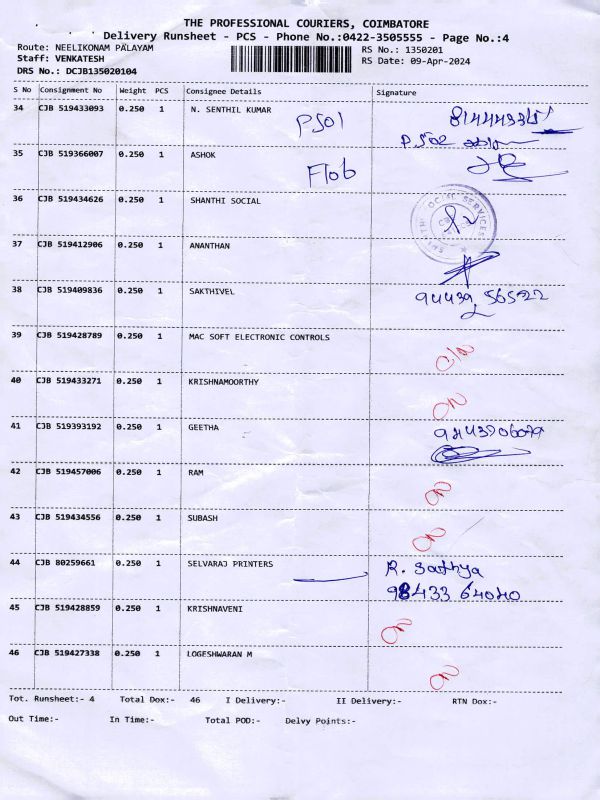 THE PROFESSIONAL COURIERS, COIMBATORE
Delivery Runsheet - PCS - Phone No.:0422-3505555 - Page No.:4
Route: NEELIKONAM PALAYAM RS No.: 1350201
Staff: VENKATESH RS Date: 09-Apr-2024
DRS No.: DCJB135020104
S No Consignment No Weight PCS Consignee Details Signature
34 CJB 519433093 0.250 1 N. SENTHIL KUMAR
PS01
35 CJB 519366007 0.250 1 ASHOK
F106
36 CJB 519434626 0.250 1 SHANTHI SOCIAL
SOCIAL SERVICES
37 CJB 519412906 0.250 1 ANANTHAN
38 CJB 519409836 0.250 1 SAKTHIVEL 94439 56522
39 CJB 519428789 0.250 1 MAC SOFT ELECTRONIC CONTROLS
40 CJB 519433271 0.250 1 KRISHNAMOORTHY
41 CJB 519393192 0.250 1 GEETHA
42 CJB 519457006 0.250 1 RAM
43 CJB 519434556 0.250 1 SUBASH
44 CJB 80259661 0.250 1 SELVARAJ PRINTERS R. Sathya
98433 64040
45 CJB 519428859 0.250 1 KRISHNAVENI
46 CJB 519427338 0.250 1 LOGESHWARAN M
Tot. Runsheet:- 4 Total Dox:- 46 I Delivery:- II Delivery:- RTN Dox:-
Out Time:- In Time:- Total POD:- Delvy Points:-